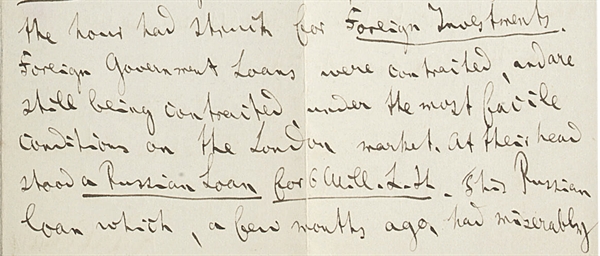 the hour had struck for Foreign Investments.
Foreign Government Loans were contracted, and are
still being contracted, under the most facile
conditions on the London market. At their head
stood a Russian Loan for 6 Mill. L. St. This Russian
loan which, a few months ago, had miserably